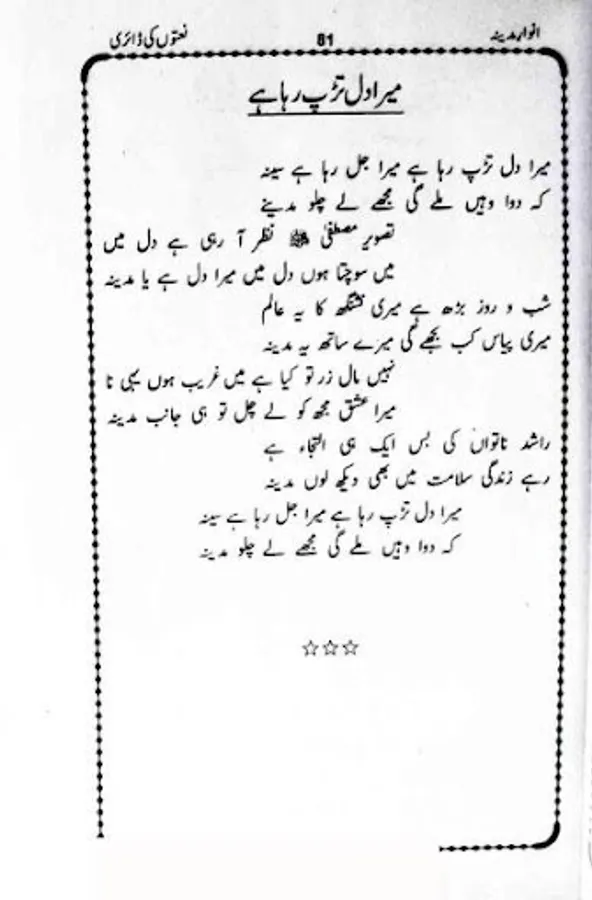 انوار مدینہ 81 نعتوں کی ڈائری
میرا دل تڑپ رہا ہے
میرا دل تڑپ رہا ہے میرا جل رہا ہے سینہ
کہ دوا وہیں ملے گی مجھے لے چلو مدینے
تصویرِ مصطفیٰ ﷺ نظر آ رہی ہے دل میں
میں سوچتا ہوں دل میں میرا دل ہے یا مدینہ
شب و روز بڑھ ہے میری کا یہ عالم
میری پیاس کب بجھے گی میرے ساتھ یہ مدینہ
نہیں مال زر تو کیا ہے میں غریب ہوں یہی نا
میرا عشق مجھ کو لے چل تو ہی جانب مدینہ
راشد ناتواں کی بس ایک ہی التجاء ہے
رہے زندگی سلامت میں بھی دیکھ لوں مدینہ
میرا دل تڑپ رہا ہے میرا جل رہا ہے سینہ
کہ دوا وہیں ملے گی مجھے لے چلو مدینہ
☆☆☆